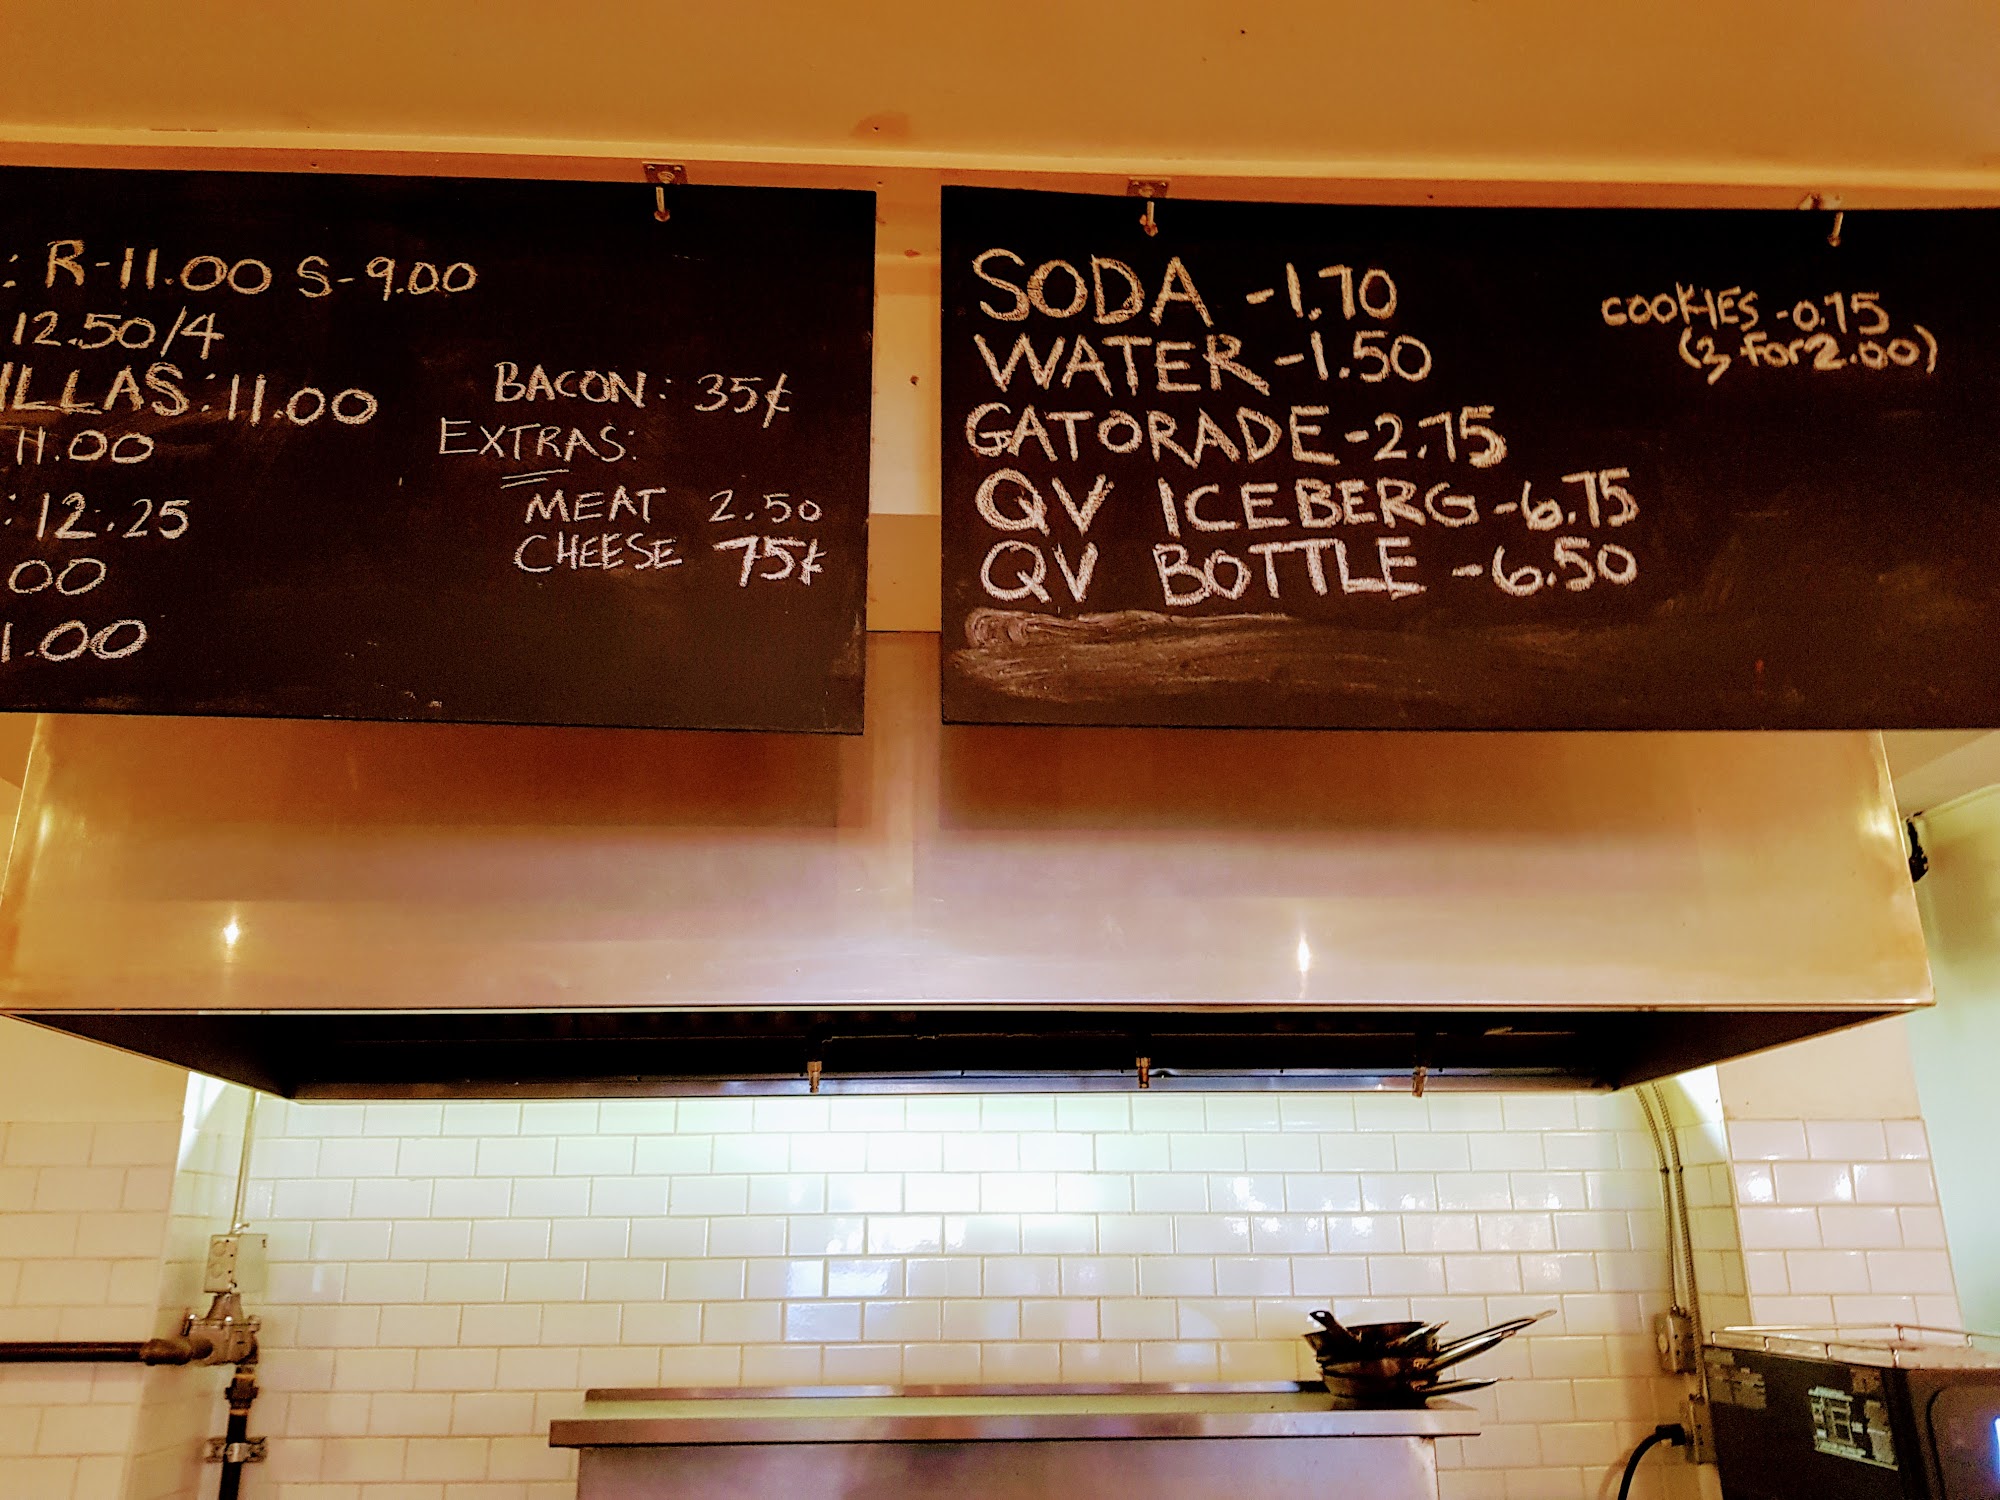 : R-11.00 S-9.00
12.50/4
ILLAS: 11.00
11.00
: 12.25
00
1.00
BACON: 35¢
EXTRAS:
MEAT 2.50
CHEESE 75¢
SODA -1.70
WATER -1.50
GATORADE -2.75
QV ICEBERG -6.75
QV BOTTLE -6.50
COOKIES -0.75
(3 for 2.00)